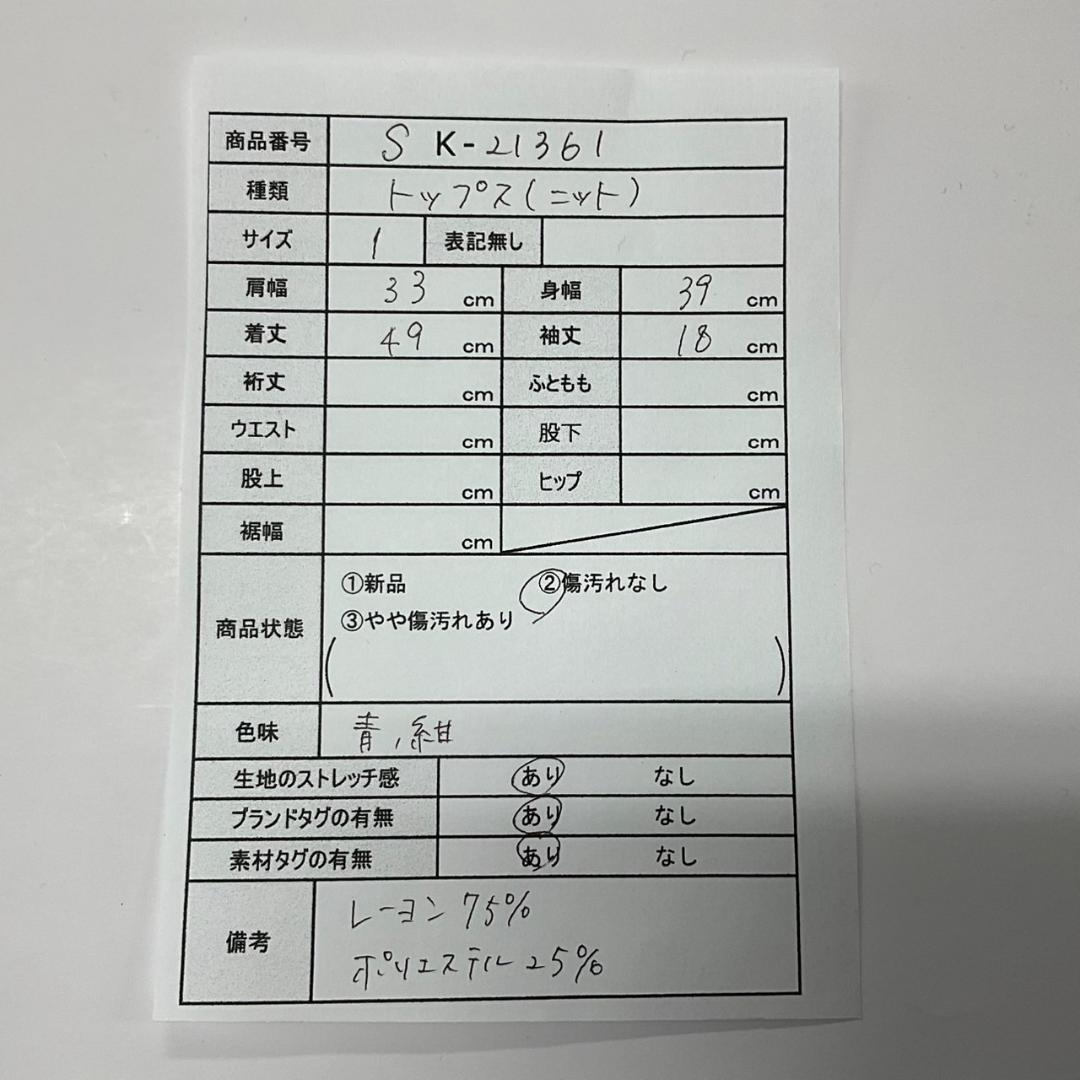 商品番号 S K-21361
種類 トップス(ニット)
サイズ 1 表記無し
肩幅 33 cm 身幅 39 cm
着丈 49 cm 袖丈 18 cm
裄丈 cm ふともも cm
ウエスト cm 股下 cm
股上 cm ヒップ cm
裾幅 cm
商品状態 ①新品 ②傷汚れなし
③やや傷汚れあり
( )
色味 青,紺
生地のストレッチ感 あり なし
ブランドタグの有無 あり なし
素材タグの有無 あり なし
備考 レーヨン 75%
ポリエステル 25%